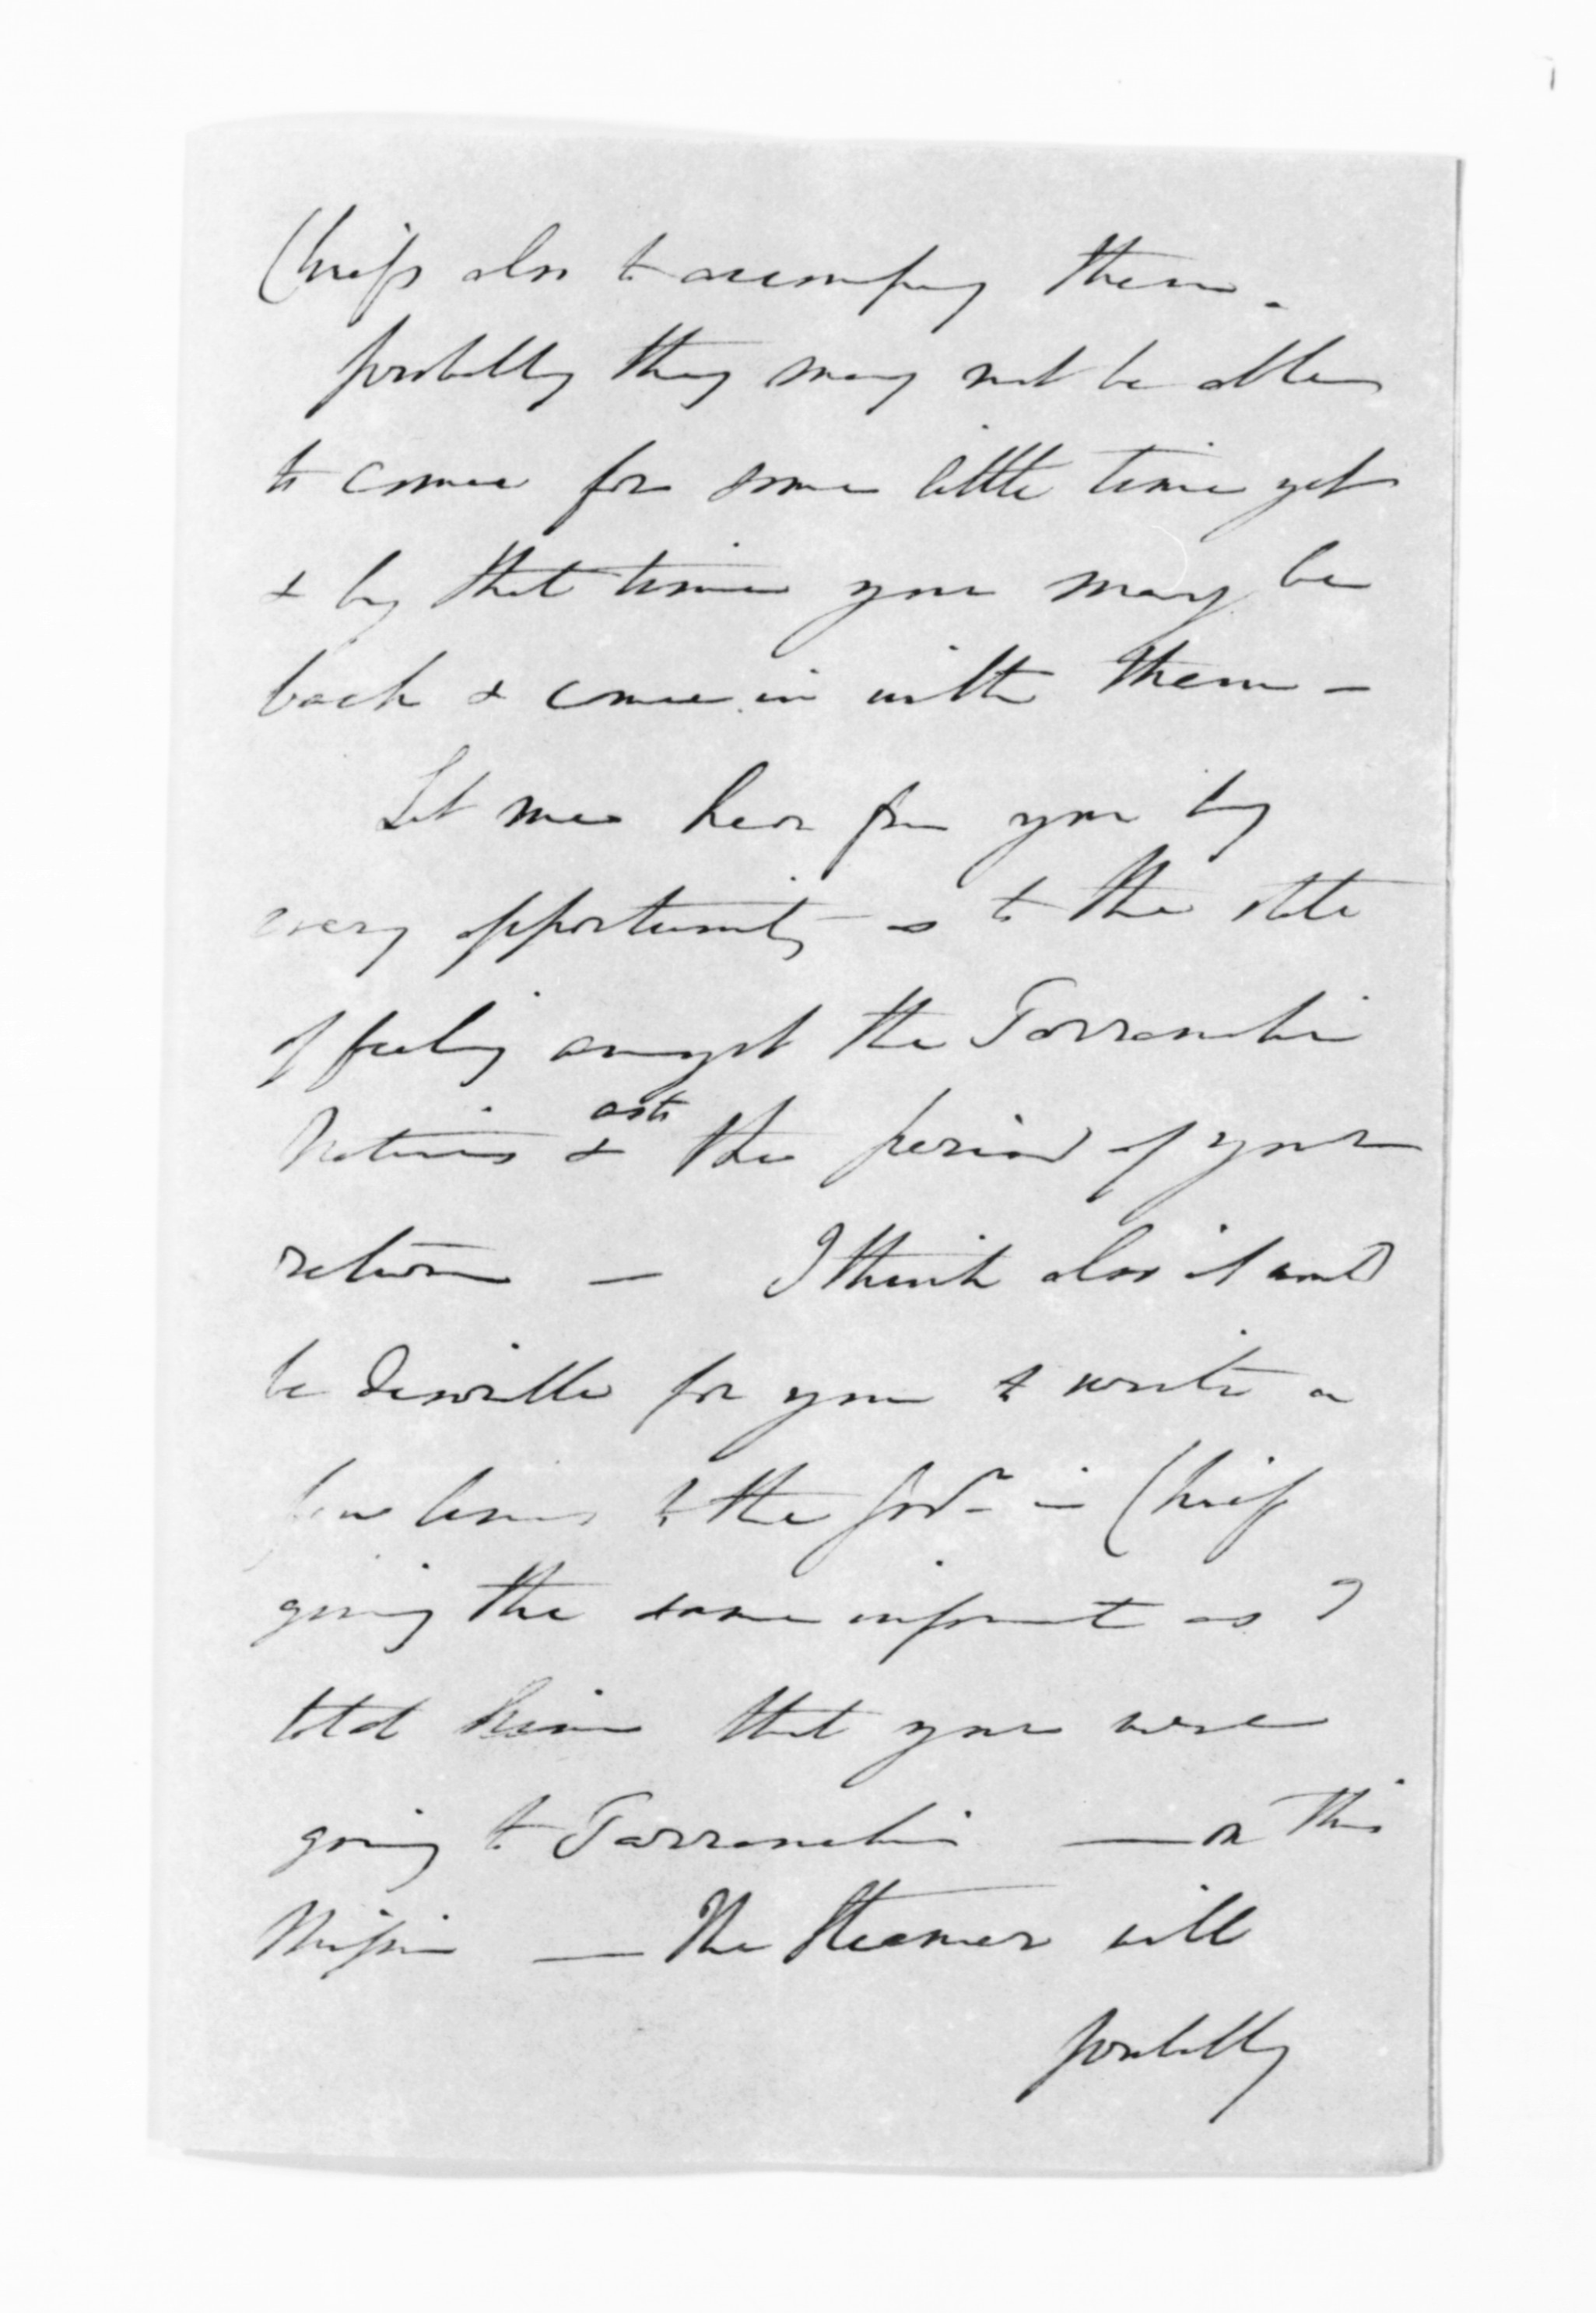 Chiefs also to accompany them.
probably they may not be able
to come for some little time yet
& by that time you may be
back & come in with them —
Let me hear from you by
every opportunity — as to the state
of feeling amongst the Tarranaki
as to
Natives & the period of your
return — I think also it would
be desirable for you to write a
few lines to the Govr. in Chief
giving the same informt as I
told him that you were
going to Tarranaki — on this
Mission — The Steamer will
probably